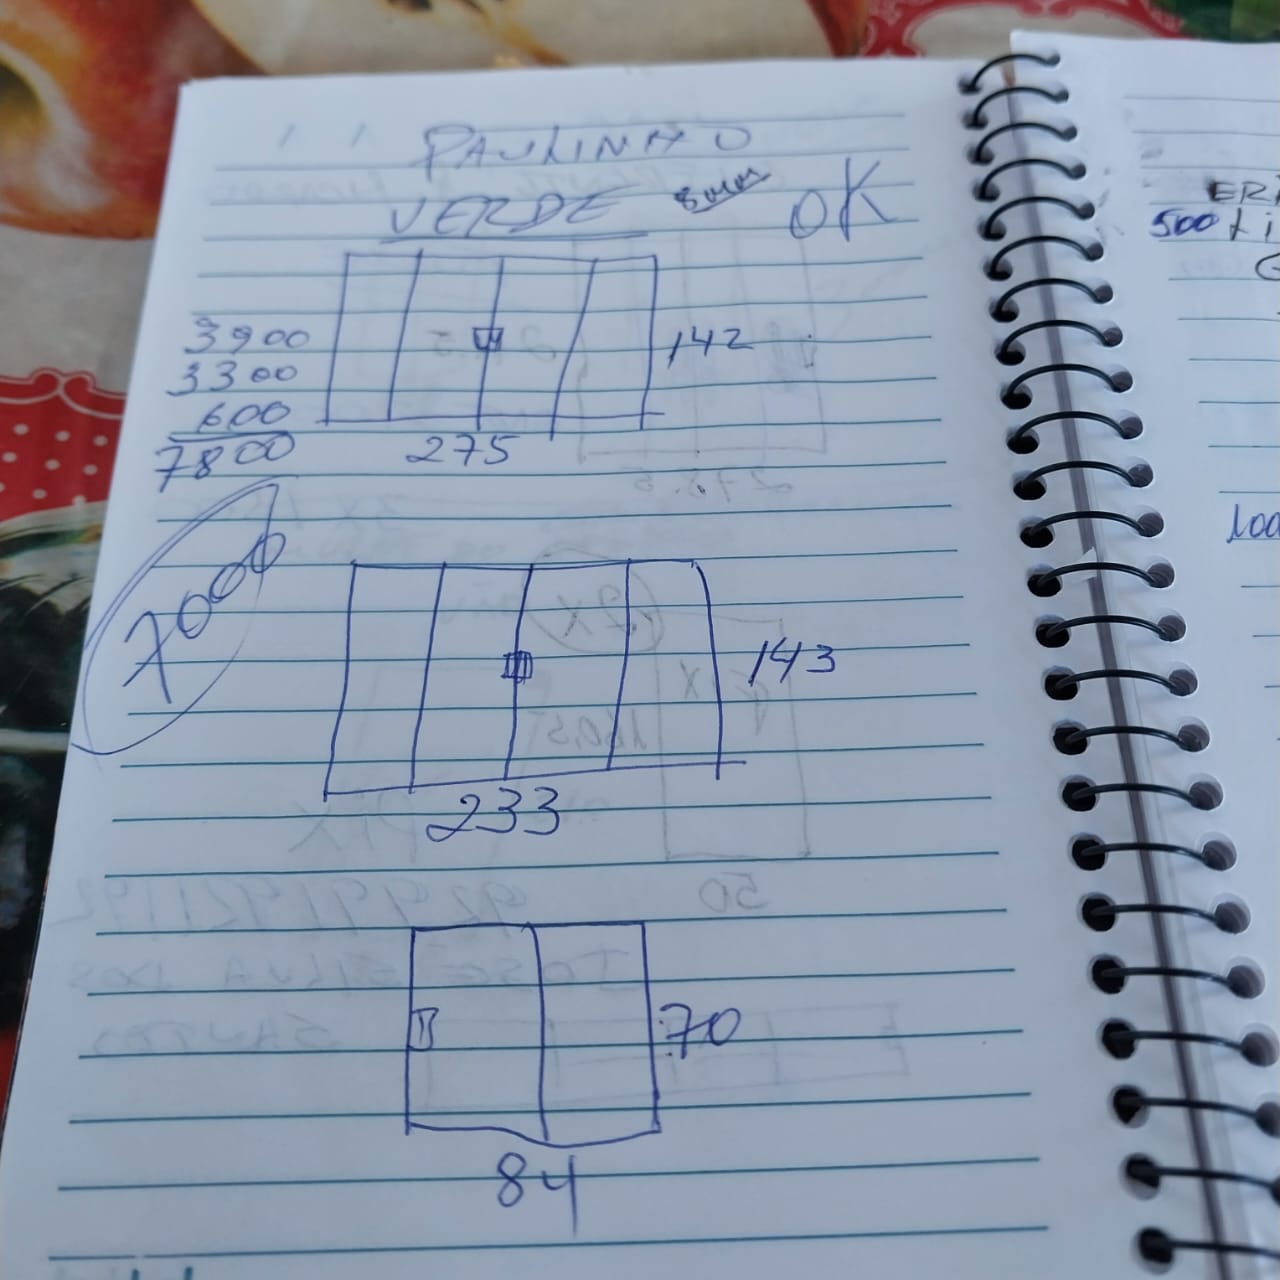 PAULINHO
VERDE 8mm OK
142
3900
3300
600
7800
275
7000
143
233
70
84
ER
500 Li
100